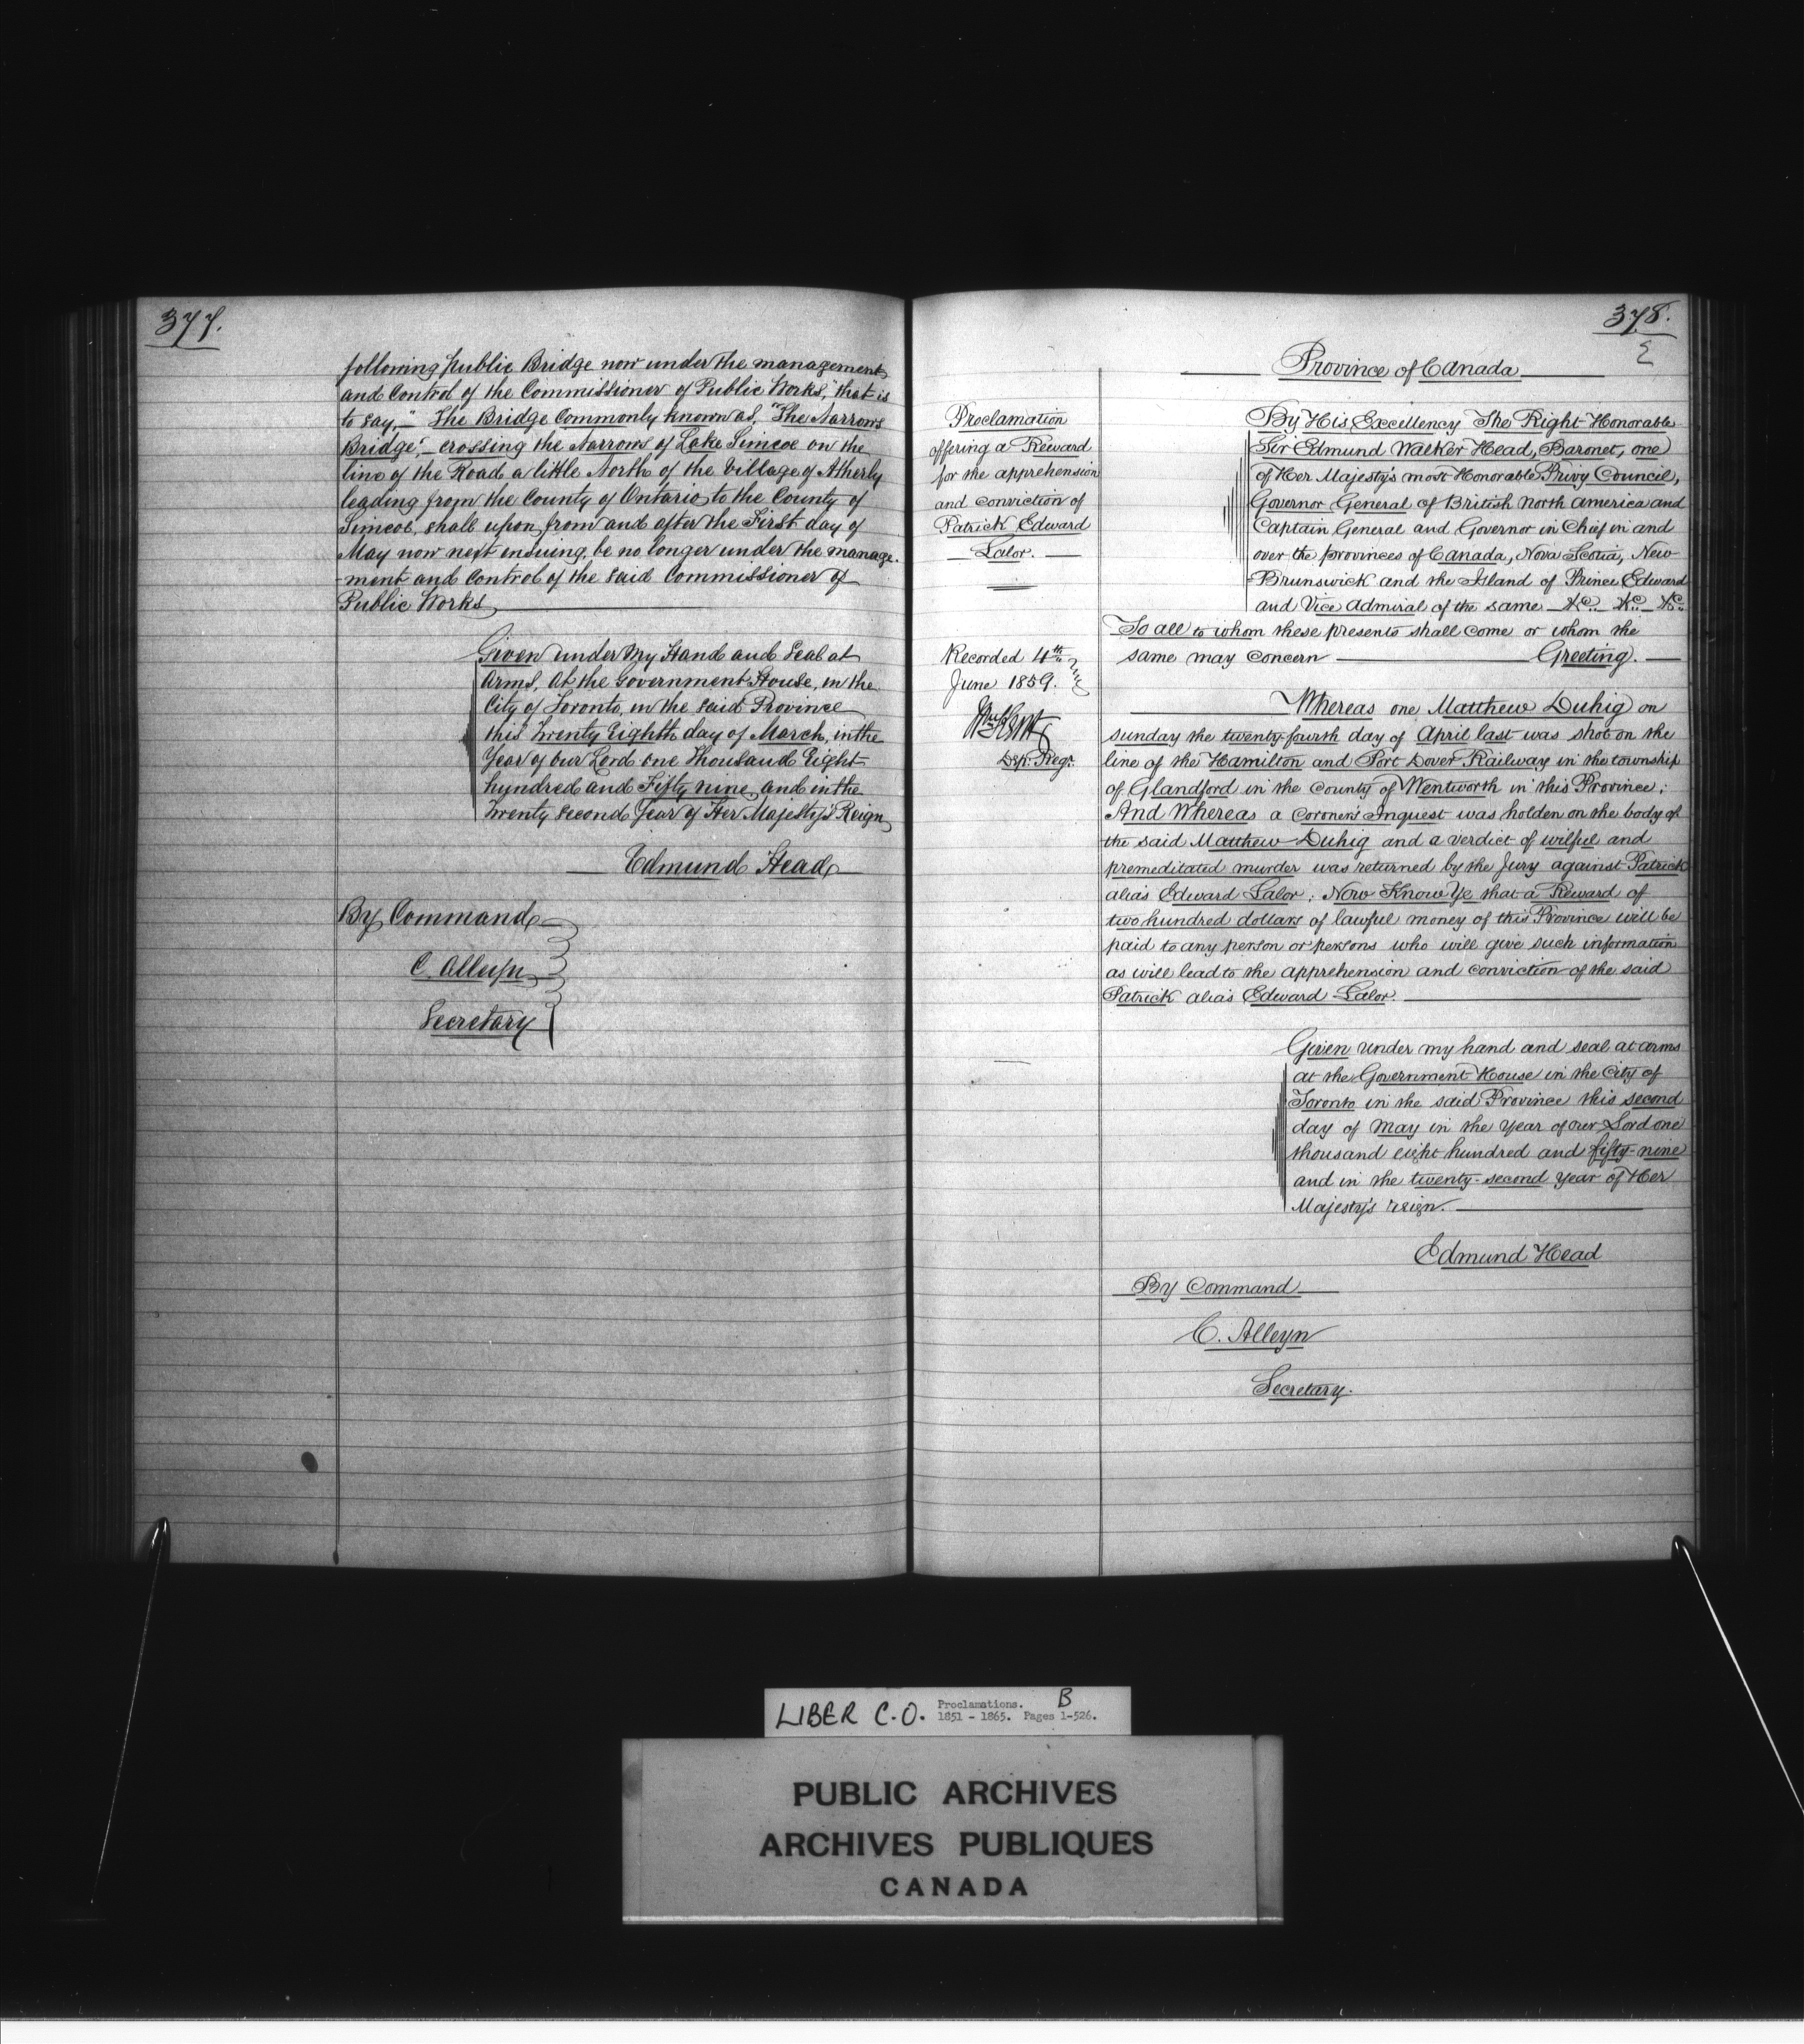 377.
following public Bridge now under the management
and Control of the Commissioner of Public Works, "that is
to say," — The Bridge Commonly known as, "The Narrows
Bridge", — crossing the Narrows of Lake Simcoe on the
line of the Road a little North of the Village of Atherly
leading from the County of Ontario to the County of
Simcoe, shall upon, from and after the First day of
May now next ensuing, be no longer under the manage-
-ment and Control of the said Commissioner of
Public Works,
Given under My Hand and Seal at
Arms, at the Government House, in the
City of Toronto, in the said Province
this Twenty Eighth day of March, in the
Year of Our Lord one Thousand Eight
hundred and Fifty nine, and in the
Twenty second Year of Her Majesty's Reign,
Edmund Head,
By Command,
C. Alleyn,
Secretary
378.
Province of Canada
Proclamation
offering a Reward
for the apprehension
and conviction of
Patrick Edward
Lalor.
Recorded 4th
June 1859.
Dep. Regr.
By His Excellency The Right Honorable
Sir Edmund Walker Head, Baronet, one
of Her Majesty's most Honorable Privy Council,
Governor General of British North America and
Captain General and Governor in Chief in and
over the provinces of Canada, Nova Scotia, New
Brunswick and the Island of Prince Edward
and Vice Admiral of the same — &c. — &c. — &c.
To all to whom these presents shall come or whom the
same may concern — Greeting. —
Whereas one Matthew Duhig on
sunday the twenty-fourth day of April last was shot on the
line of the Hamilton and Port Dover Railway in the township
of Glandford in the County of Wentworth in this Province;
And Whereas a Coroner's Inquest was holden on the body of
the said Matthew Duhig and a verdict of wilful and
premeditated murder was returned by the Jury against Patrick
alias Edward Lalor: Now Know Ye that a Reward of
two hundred dollars of lawful money of this Province will be
paid to any person or persons who will give such information
as will lead to the apprehension and conviction of the said
Patrick alias Edward Lalor.
Given under my hand and seal at arms
at the Government House in the City of
Toronto in the said Province this second
day of May in the Year of our Lord one
thousand eight hundred and fifty-nine
and in the twenty-second year of Her
Majesty's reign.
Edmund Head
By Command
C. Alleyn
Secretary.
LIBER C.O. Proclamations. B
1851 - 1865. Pages 1-526.
PUBLIC ARCHIVES
ARCHIVES PUBLIQUES
CANADA